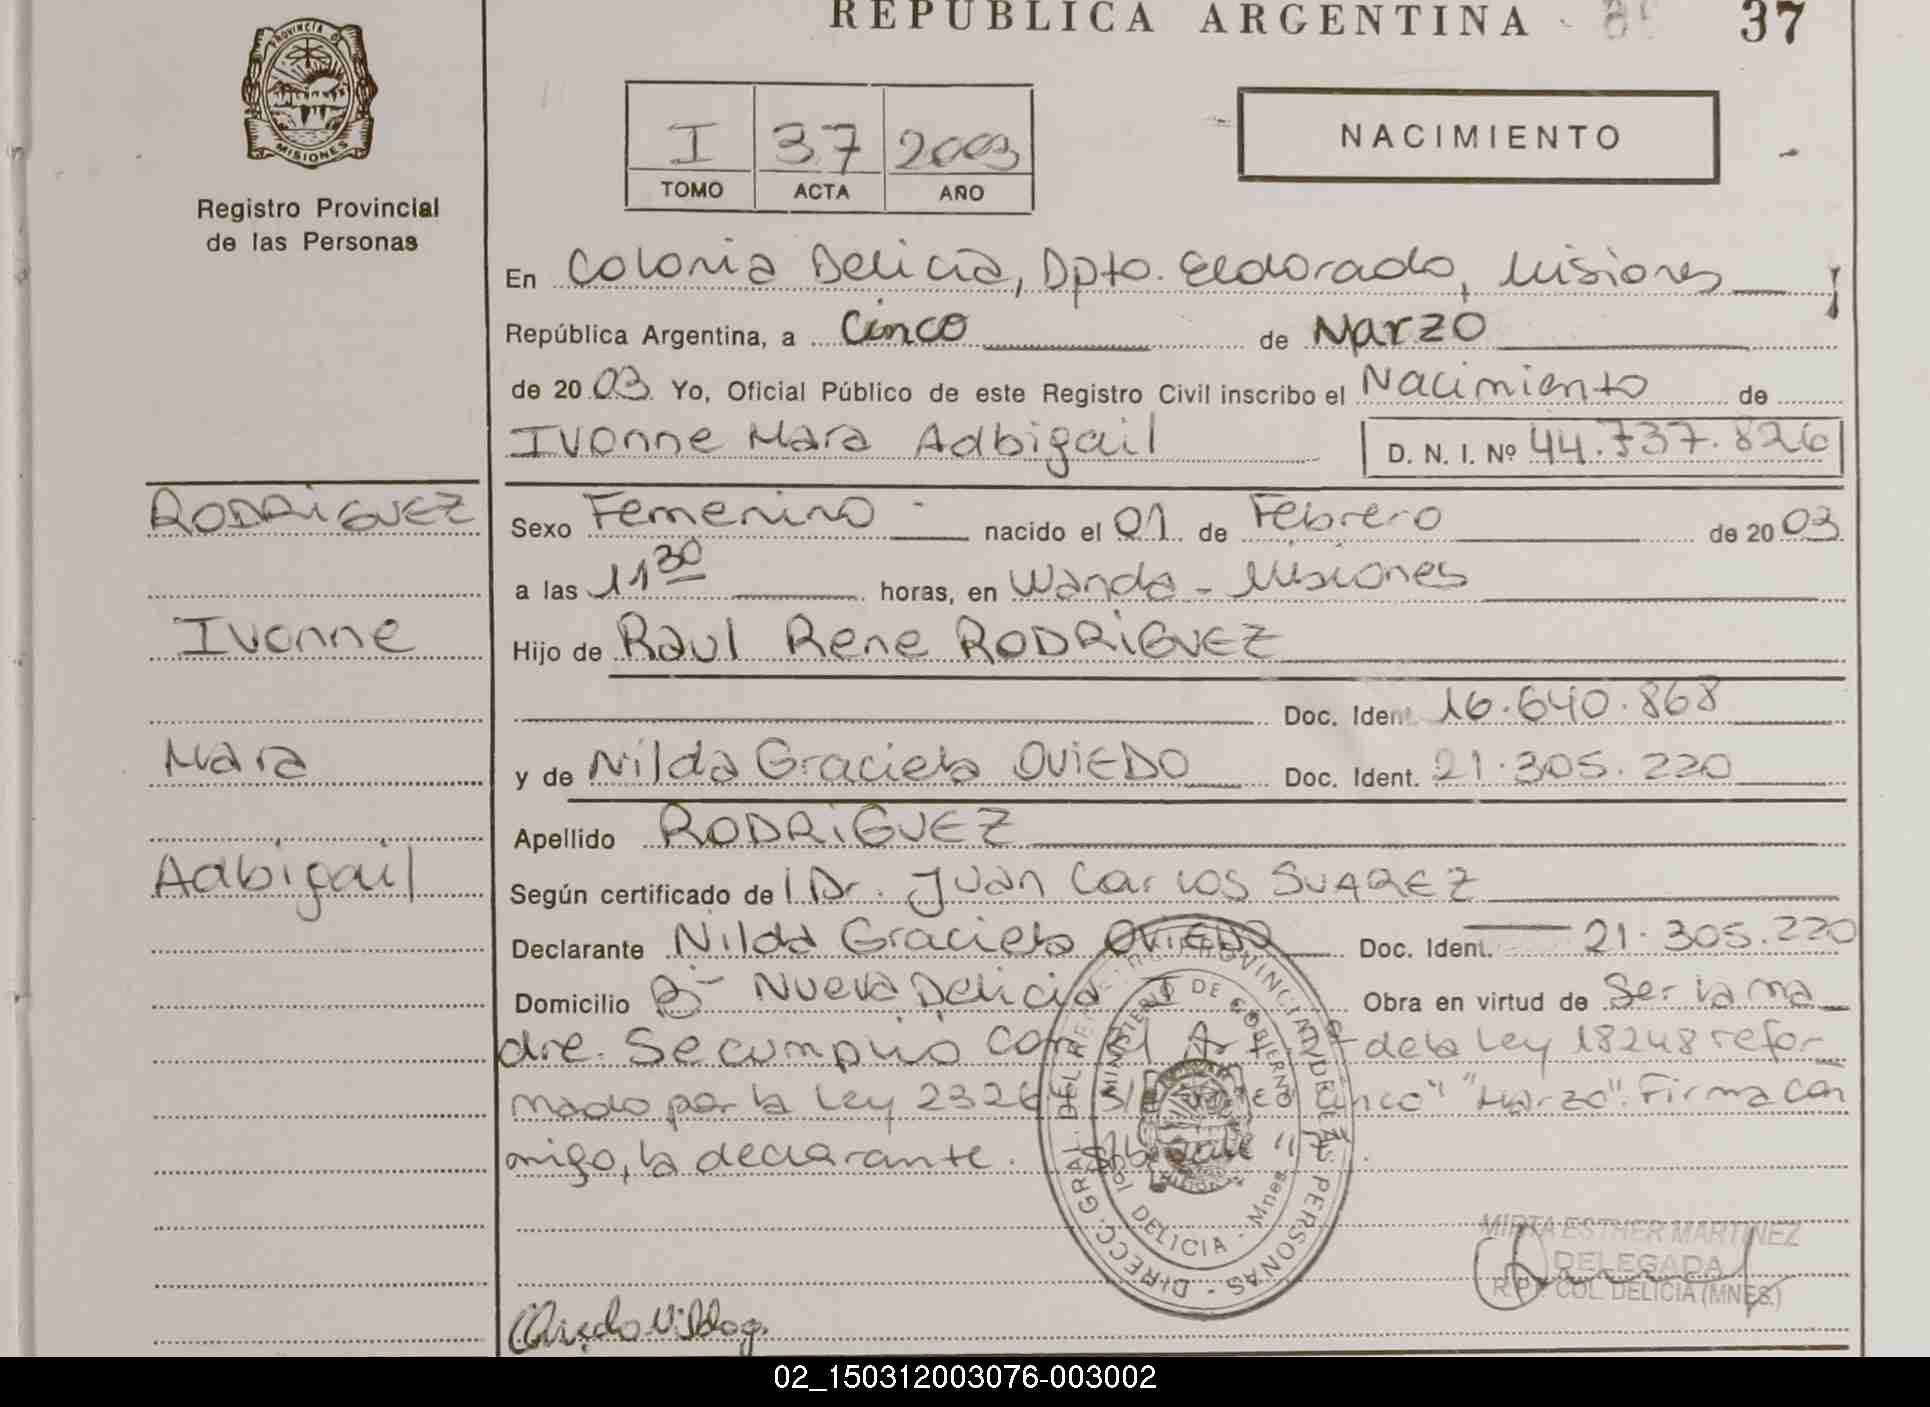 REPUBLICA ARGENTINA 37
PROVINCIA DE
MISIONES
Registro Provincial
de las Personas
I 37 2003
TOMO ACTA AÑO
NACIMIENTO
En Colonia Delicia, Dpto. Eldorado, Misiones
República Argentina, a Cinco de Marzo
de 2003 Yo, Oficial Público de este Registro Civil inscribo el Nacimiento de
Ivonne Mara Adbigail D. N. I. Nº 44.737.826
RODRIGUEZ
Ivonne
Mara
Adbigail
Sexo Femenino nacido el 01 de Febrero de 2003
a las 11 30 horas, en Wanda - Misiones
Hijo de Raul Rene RODRIGUEZ
Doc. Ident. 16.640.868
y de Nilda Graciela OVIEDO Doc. Ident. 21.305.220
Apellido RODRIGUEZ
Según certificado de Dr. Juan Carlos SUAREZ
Declarante Nilda Graciela OVIEDO Doc. Ident. 21.305.220
Domicilio Bº Nueva Delicia I Obra en virtud de Ser la ma
dre. Se cumplió con el Art. de la Ley 18248 refor-
mado por la Ley "Marzo". Firma con
migo, la declarante.
DIRECC. GRAL. DEL PROVINCIAL DE PERSONAS
MINISTERIO DE GOBIERNO
DELICIA - Mnes.
MIRTA ESTHER MARTINEZ
DELEGADA
R.P.P. COL. DELICIA (MNES.)
Oviedo Nilda g.
02_150312003076-003002